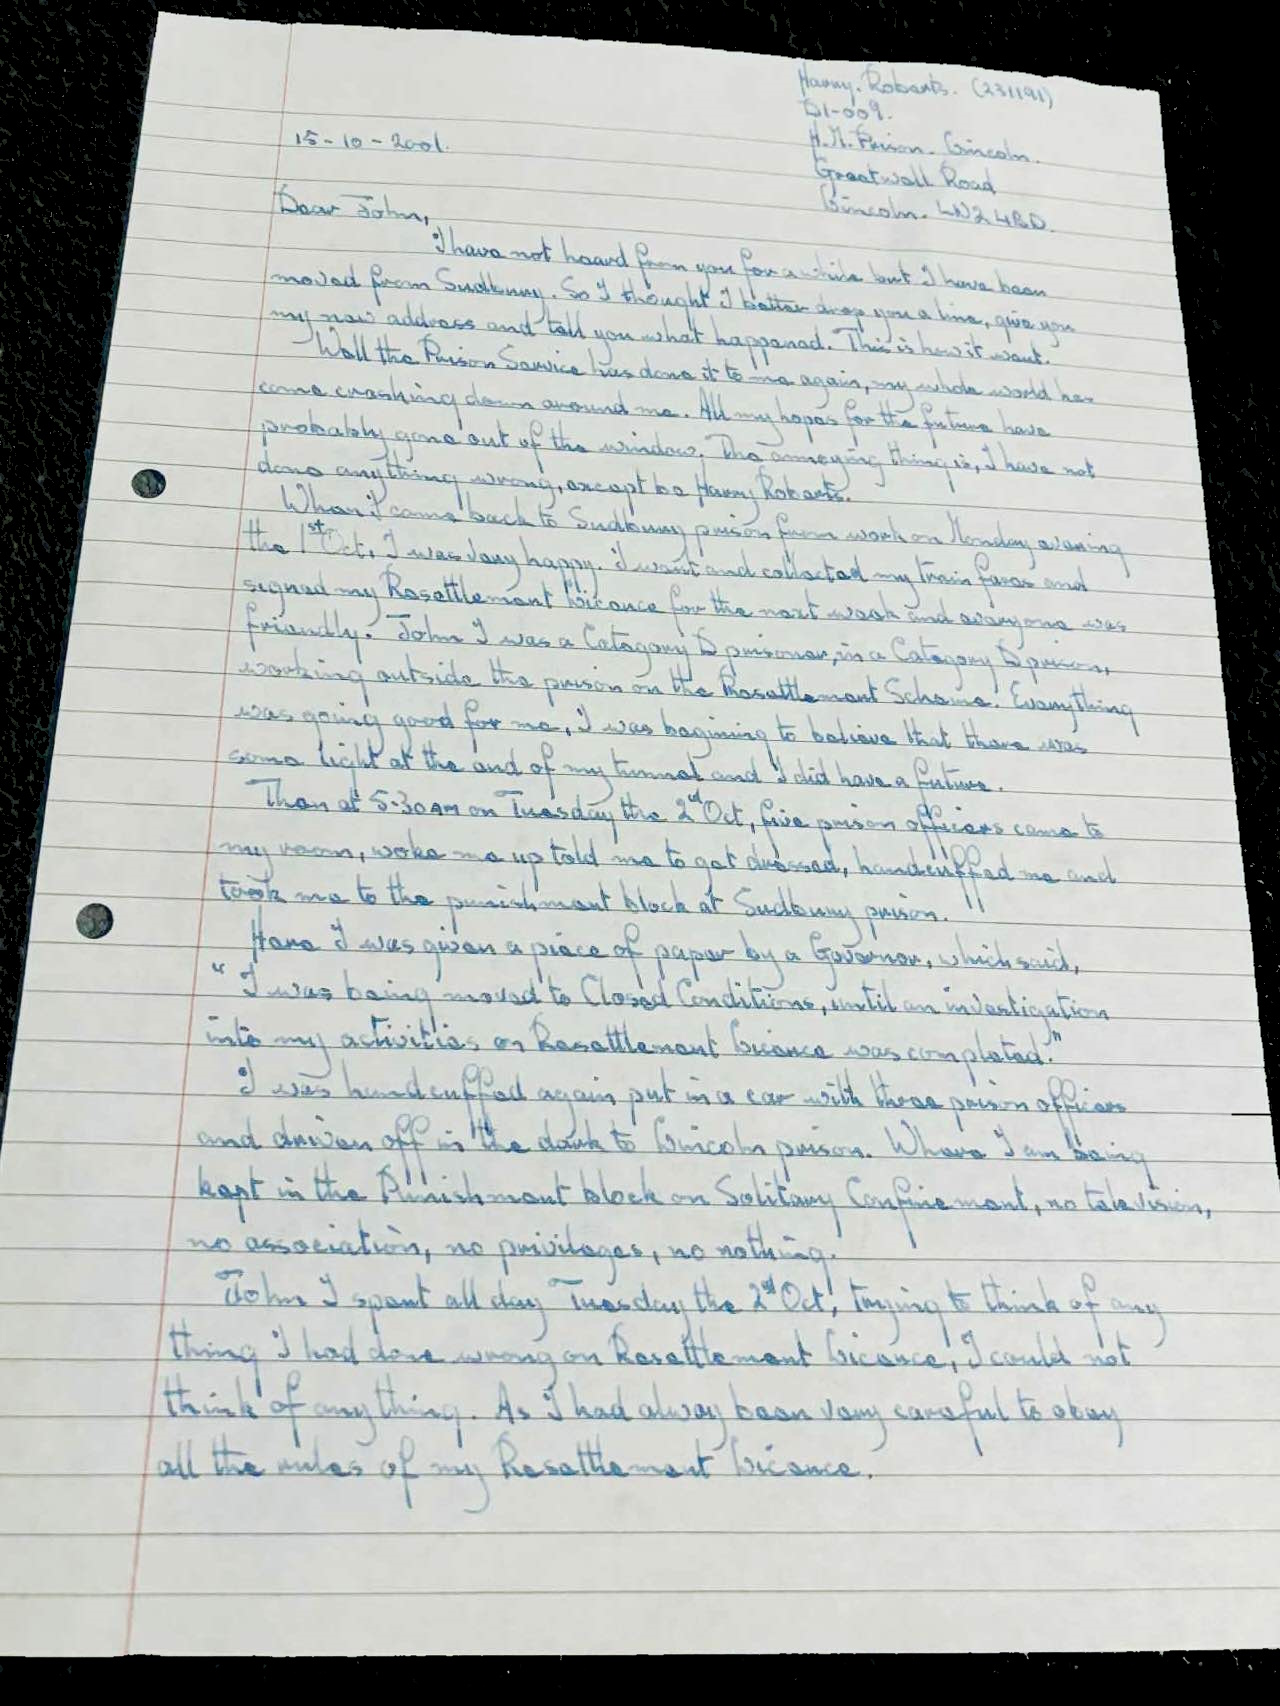 Harry. Roberts. (231191)
D1-009.
H.M. Prison. Lincoln.
Greetwell Road
Lincoln. LN2 4BD.
15-10-2001.
Dear John,
I have not heard from you for a while but I have been
moved from Sudbury. So I thought I better drop you a line, give you
my new address and tell you what happened. This is how it went.
Well the Prison Service has done it to me again, my whole world has
come crashing down around me. All my hopes for the future have
probably gone out of the window. The annoying thing is, I have not
done anything wrong, except be Harry Roberts.
When I came back to Sudbury prison from work on Monday evening
the 1st Oct, I was very happy. I went and collected my train fares and
signed my Resettlement Licence for the next week and everyone was
friendly. John I was a Catagory D prisoner, in a Catagory D prison,
working outside the prison on the Resettlement Scheme. Everything
was going good for me, I was begining to believe that there was
some light at the end of my tunnel and I did have a future.
Then at 5.30 AM on Tuesday the 2nd Oct, five prison officers came to
my room, woke me up told me to get dressed, handcuffed me and
took me to the punishment block at Sudbury prison.
Here I was given a piece of paper by a Governor, which said,
"I was being moved to Closed Conditions, until an investigation
into my activities on Resettlement Licence was completed."
I was handcuffed again put in a car with three prison officers
and driven off in the dark to Lincoln prison. Where I am being
kept in the Punishment block on Solitary Confinement, no television,
no association, no privileges, no nothing.
John I spent all day Tuesday the 2nd Oct, trying to think of any
thing I had done wrong on Resettlement Licence, I could not
think of anything. As I had alway been very careful to obey
all the rules of my Resettlement Licence.